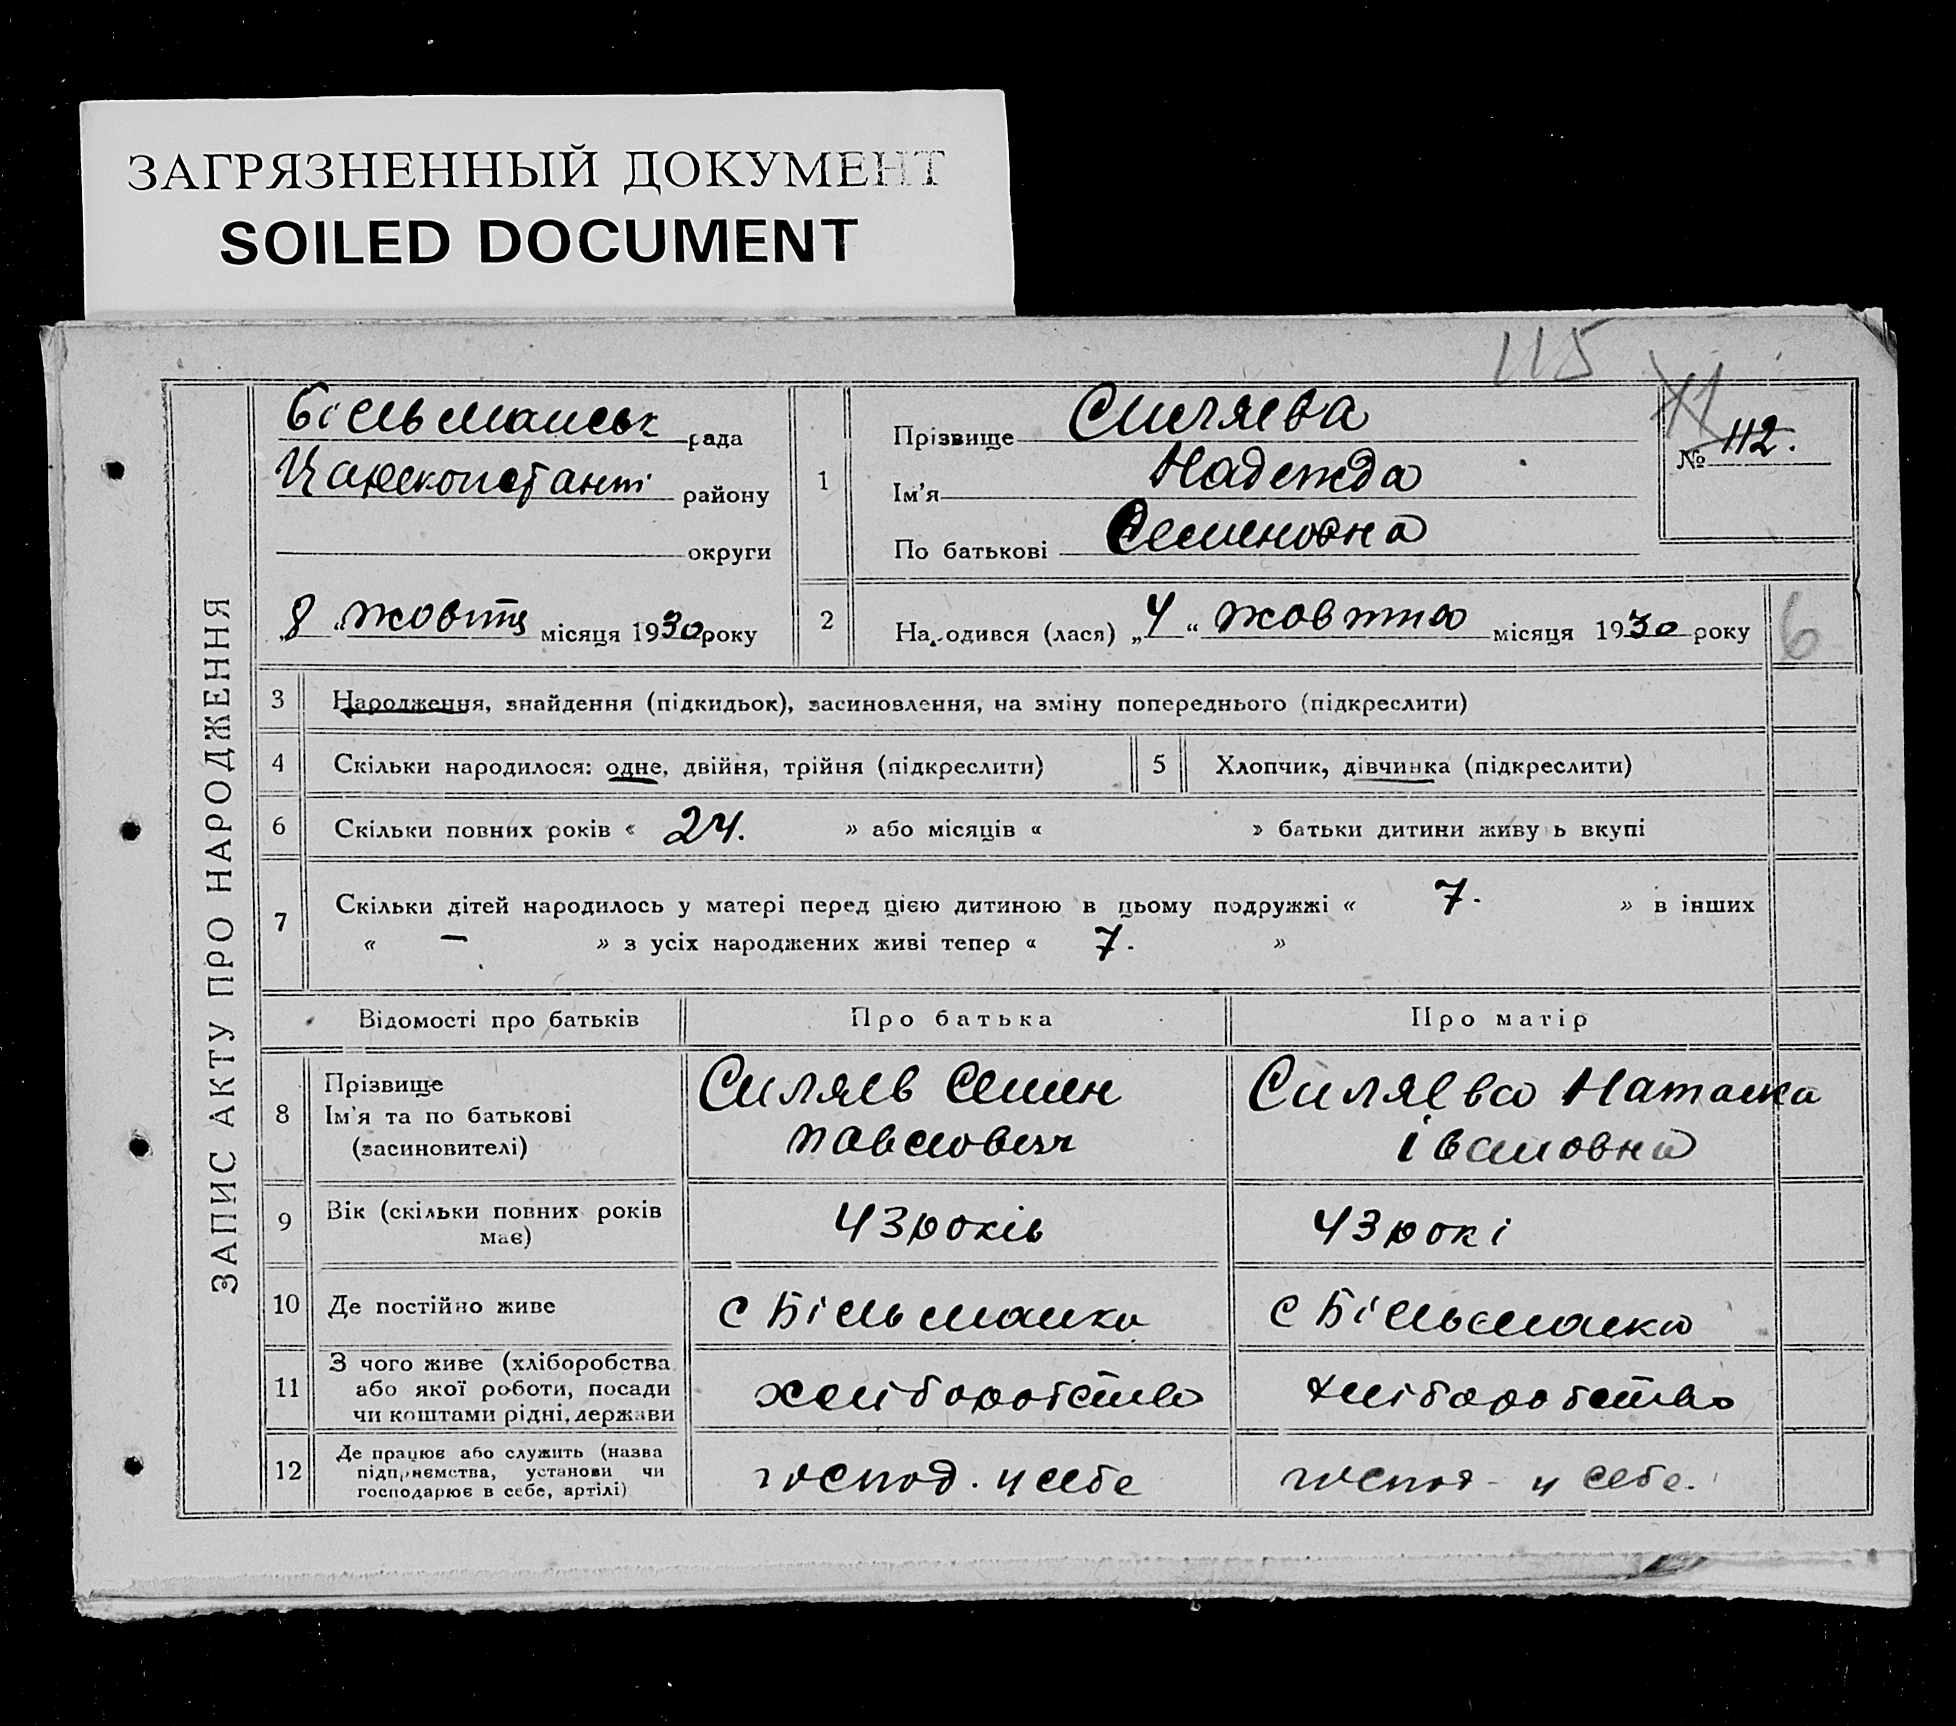 ЗАГРЯЗНЕННЫЙ ДОКУМЕНТ
SOILED DOCUMENT
115
ЗАПИС АКТУ ПРО НАРОДЖЕННЯ
Більманськ рада
Царекостянт. району
округи
„8“ жовтц місяця 1930 року
1
Прізвище Силяева
Ім'я Надежда
По батькові Семеновна
№ 112.
2 Народився (лася) „4“ жовтня місяця 1930 року
6
3 Народження, знайдення (підкидьок), засиновлення, на зміну попереднього (підкреслити)
4 Скільки народилося: одне, двійня, трійня (підкреслити) 5 Хлопчик, дівчинка (підкреслити)
6 Скільки повних років « 24. » або місяців « » батьки дитини живуть вкупі
7 Скільки дітей народилось у матері перед цією дитиною в цьому подружжі « 7. » в інших
« — » з усіх народжених живі тепер « 7. »
Відомості про батьків Про батька Про матір
8 Прізвище
Ім'я та по батькові
(засиновителі)
Силяев Семен
Павлович
Силяева Наталка
Івановна
9 Вік (скільки повних років
має)
43 років
43 рокі
10 Де постійно живе с Більманка с Більманка
11 З чого живе (хліборобства
або якої роботи, посади
чи коштами рідні, держави
хліборобство
хліборобство
12 Де працює або служить (назва
підприємства, установи чи
господарює в себе, артілі)
господ. у себе
господ - у себе.